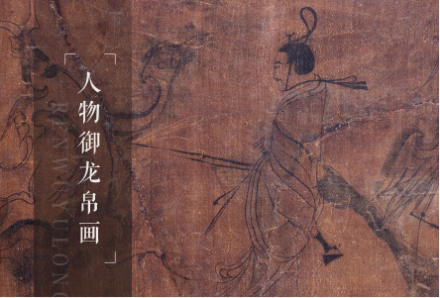 人物御龙帛画
RENWUYULONG